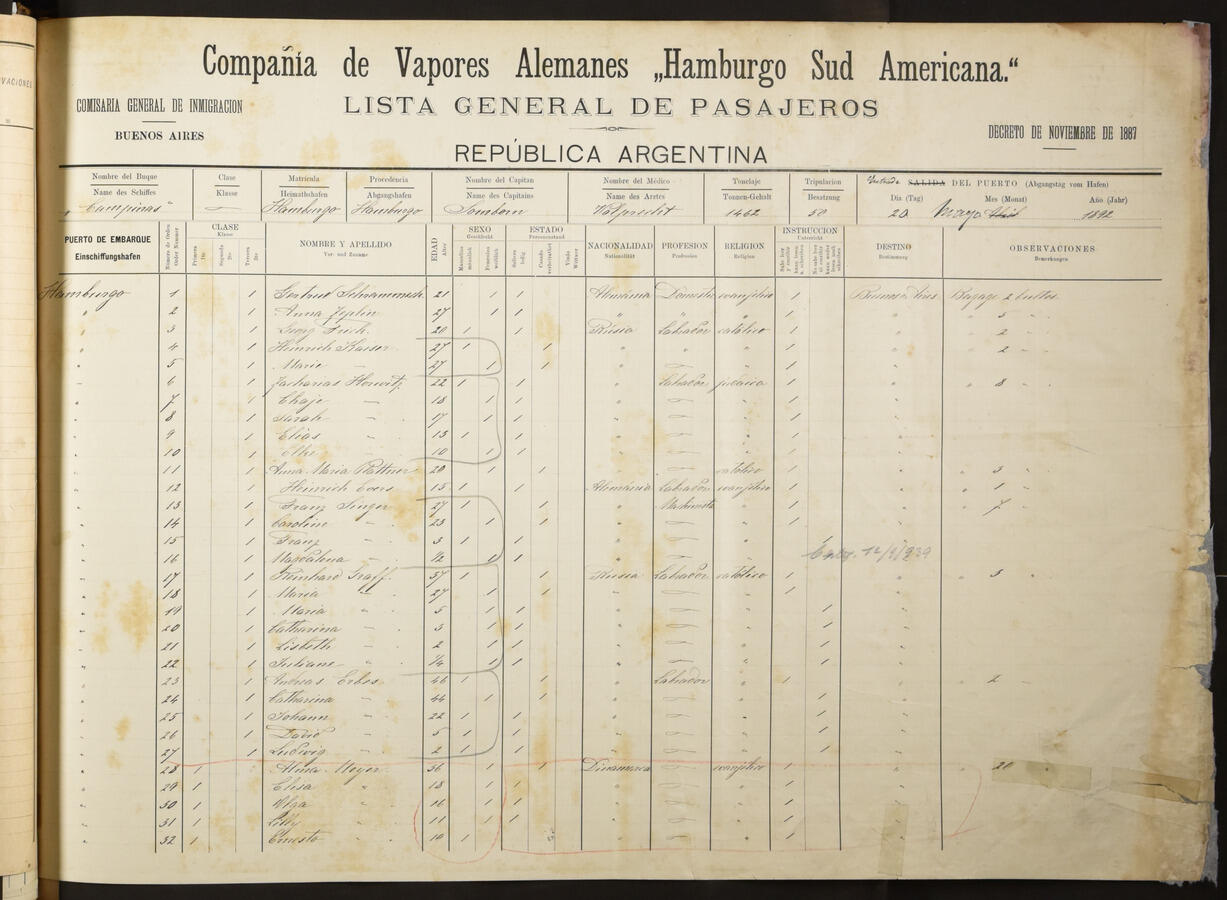 VACIONES
Compañía de Vapores Alemanes „Hamburgo Sud Americana.“
COMISARIA GENERAL DE INMIGRACION
LISTA GENERAL DE PASAJEROS
BUENOS AIRES
DECRETO DE NOVIEMBRE DE 1887
REPÚBLICA ARGENTINA
Nombre del Buque Clase Matrícula Procedencia Nombre del Capitan Nombre del Médico Tonelaje Tripulacion Entrada SALIDA DEL PUERTO (Abgangstag vom Hafen)
Name des Schiffes Klasse Heimathshafen Abgangshafen Name des Capitains Name des Arztes Tonnen-Gehalt Besatzung Dia (Tag) Mes (Monat) Año (Jahr)
"Campinas" Hamburgo Hamburgo 1462 50 20 Mayo 1892
PUERTO DE EMBARQUE Einschiffungshafen
Número de Orden Order Nummer
CLASE Klasse Primera Segunda Tercera
NOMBRE Y APELLIDO Vor- und Zuname
EDAD Alter
SEXO Geschlecht Masculino männlich Femenino weiblich
ESTADO Personenstand Soltero ledig Casado verheirathet Viudo Wittwer
NACIONALIDAD Nationalität
PROFESION Profession
RELIGION Religion
INSTRUCCION Unterricht
DESTINO Bestimmung
OBSERVACIONES Bemerkungen
Hamburgo 1 1 Gertrud 21 1 1 Alemánia evanjélico 1 Buenos Aires Bagage 2 bultos
" 2 1 Anna Zeplin 27 1 1 " " " 1 " " 5 "
" 3 1 Georg 20 1 1 Rusia Labrador católico 1 " " 2 "
" 4 1 Heinrich Kaiser 27 1 1 " " " 1 " " 2 "
" 5 1 Marie — 27 1 1 " " 1 "
" 6 1 Zacharias Horwitz 22 1 1 " Labrador judáica 1 " " 8 "
" 7 1 Chaje — 18 1 1 " " 1 "
" 8 1 Sarah — 17 1 1 " " 1 "
" 9 1 Elias — 13 1 1 " " 1 "
" 10 1 — 10 1 1 " " 1 "
" 11 1 Anna Maria 20 1 1 " católico 1 " " 3 "
" 12 1 Heinrich Evers 15 1 1 Alemánia Labrador evanjélico 1 " " 1 "
" 13 1 Franz Singer 27 1 1 " Machinista " 1 " " 7 "
" 14 1 Caroline — 23 1 1 " " 1 "
" 15 1 Franz — 3 1 1 " " 1 "
" 16 1 Magdalena — 1/2 1 1 " " 12/9/939
" 17 1 Reinhard Graff 37 1 Russia Labrador católico 1 " " 3 "
" 18 1 Maria " 27 1 1 " " 1 "
" 19 1 Maria " 5 1 1 " " 1 "
" 20 1 Catharina " 3 1 1 " " 1 "
" 21 1 Lisbeth " 2 1 1 " " 1 "
" 22 1 Juliane " 1/4 1 1 " " 1 "
" 23 1 Andreas Erbes 46 1 1 " Labrador " 1 " " 2 "
" 24 1 Catharina — 44 1 " " 1 "
" 25 1 Johann — 22 1 1 " " 1 "
" 26 1 David — 5 1 1 " " 1 "
" 27 1 Ludwig — 2 1 1 " " 1 "
" 28 1 Alma Meyer 36 1 1 Dinamarca evanjélico 1 " " 20 "
" 29 1 Elisa " 18 1 1 " " 1 "
" 30 1 Olga " 16 1 1 " " 1 "
" 31 1 Lilly " 11 1 1 " " 1 "
" 32 1 Ernesto " 10 1 " " 1 "